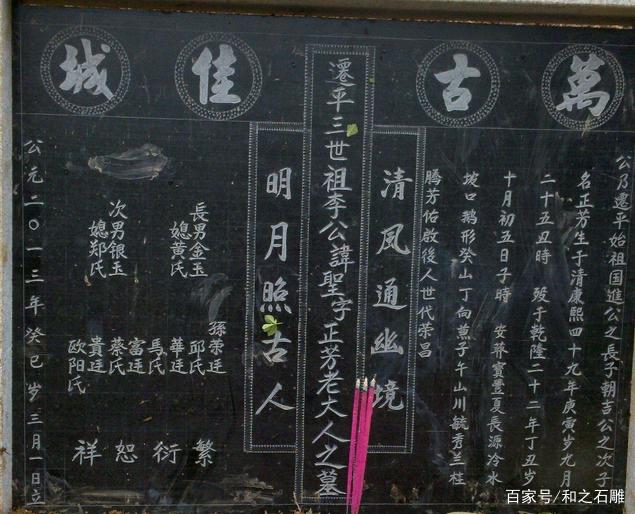 萬古佳城
公乃遷平始祖国進公之長子朝吉公之次子
名正芳生于清康熙四十九年庚寅岁九月
二十五丑時 殁于乾隆二十二年丁丑岁
十月初五日子時 安葬寶豐夏長源冷水
坡口鵝形癸山丁向蒹子午山川毓秀兰桂
騰芳佑啟後人世代荣昌
清風通幽境
遷平三世祖李公諱聖字正芳老大人之墓
明月照古人
長男金玉
媳黄氏
次男银玉
媳郑氏
孫荣廷
邱氏
華廷
馬氏
富廷
蔡氏
貴廷
欧阳氏
繁衍恕祥
公元二0一三年癸巳岁三月一日立
百家号/和之石雕